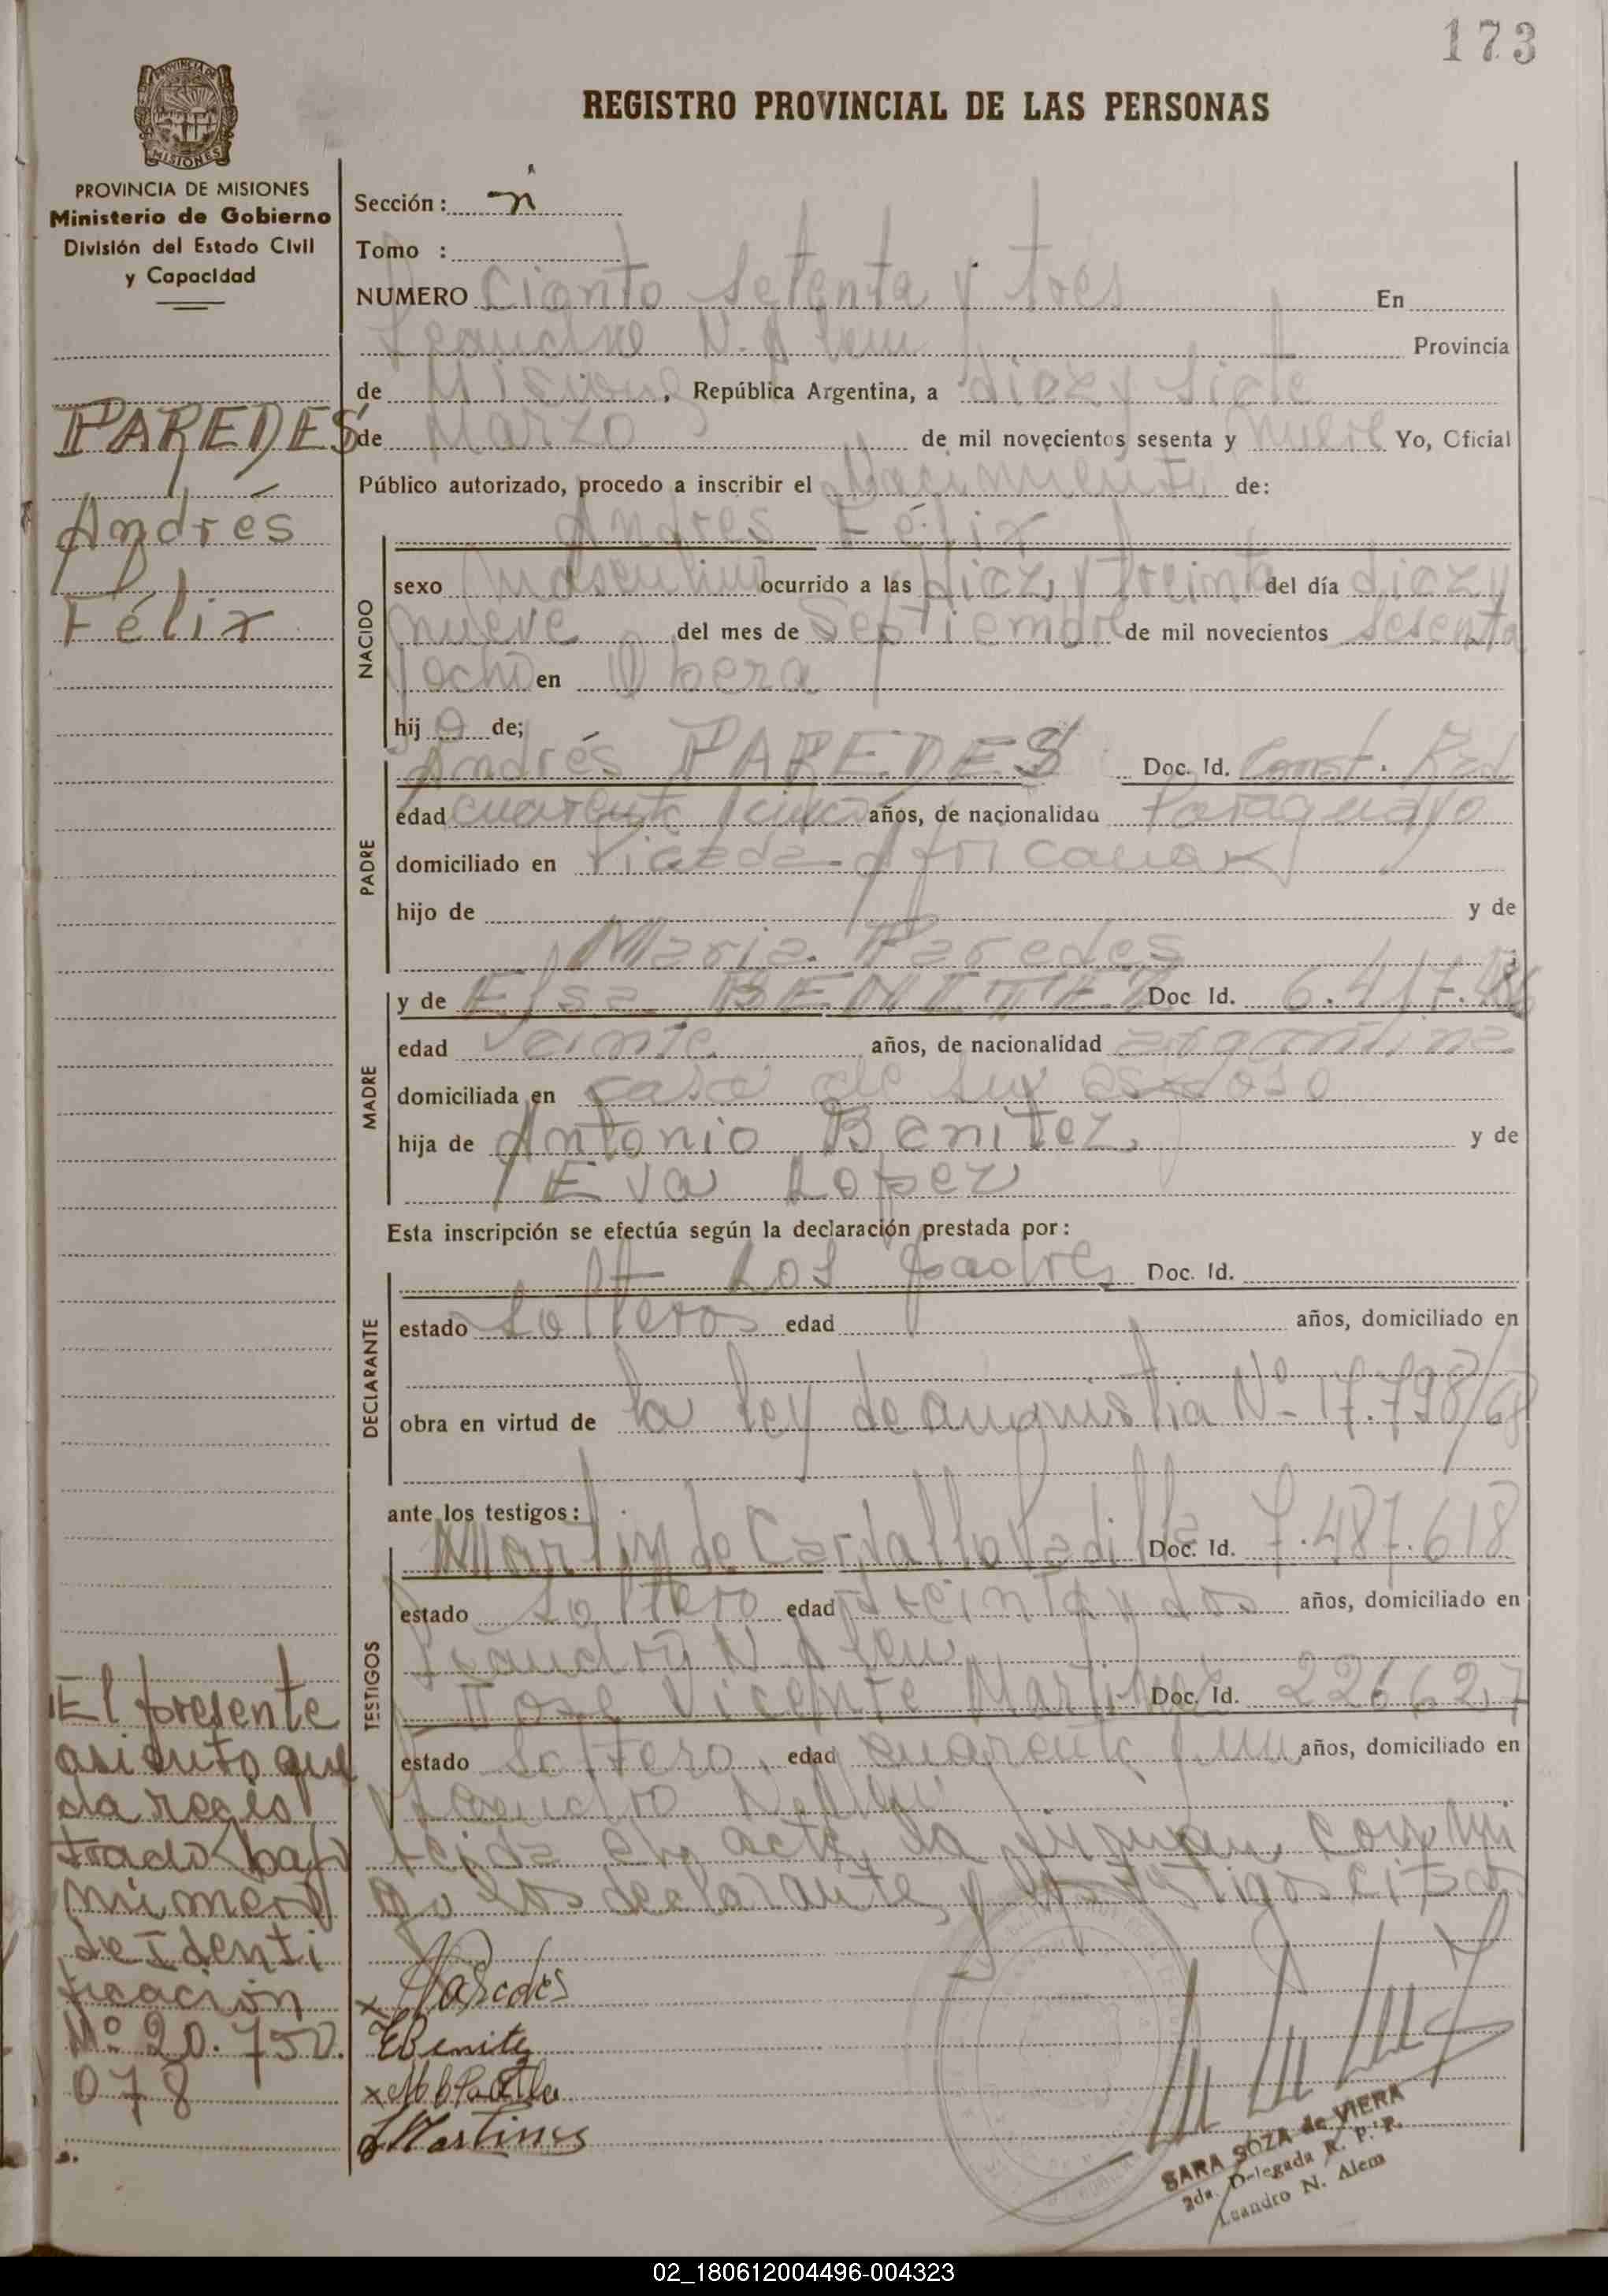 173
REGISTRO PROVINCIAL DE LAS PERSONAS
PROVINCIA DE MISIONES
MISIONES
PROVINCIA DE MISIONES
Ministerio de Gobierno
División del Estado Civil
y Capacidad
PAREDES
Andrés
Félix
El presente
asiento que
da regis
trado bajo
número
de Identi
ficación
Nº 20.750.
078
Sección:
Tomo :
NUMERO Ciento setenta y tres En
Leandro N. Alem Provincia
de Misiones, República Argentina, a diez y siete
de Marzo de mil novecientos sesenta y nueve Yo, Oficial
Público autorizado, procedo a inscribir el Nacimiento de:
NACIDO
Andrés Félix
sexo Masculino ocurrido a las diez y treinta del día diez y
nueve del mes de Septiembre de mil novecientos sesenta
y ocho en Obera
hijo de;
PADRE
Andrés PAREDES Doc. Id. Const. Rad
edad cuarenta y cinco años, de nacionalidad Paraguayo
domiciliado en Picada Africana
hijo de y de
Maria Paredes
MADRE
y de Elsa BENITEZ Doc Id. 6.417.
edad veinte años, de nacionalidad argentina
domiciliada en casa de su esposo
hija de Antonio Benitez, y de
Eva Lopez
Esta inscripción se efectúa según la declaración prestada por:
DECLARANTE
Los padres Doc. Id.
estado Solteros edad años, domiciliado en
obra en virtud de la ley de amnistia Nº 17.798/68
ante los testigos:
TESTIGOS
Martin de Padilla Doc. Id. 7.487.618
estado Soltero edad treinta y dos años, domiciliado en
Leandro N. Alem
Jose Vicente Martinez Doc. Id.
estado Soltero, edad cuarenta y un años, domiciliado en
Leandro N. Alem
Leida el acta la firman conmi
go los declarantes y los testigos citados
x Paredes
EBenitez
x
Martines
SARA SOZA de VIERA
2da. Delegada R. P. P.
Leandro N. Alem
02_180612004496-004323